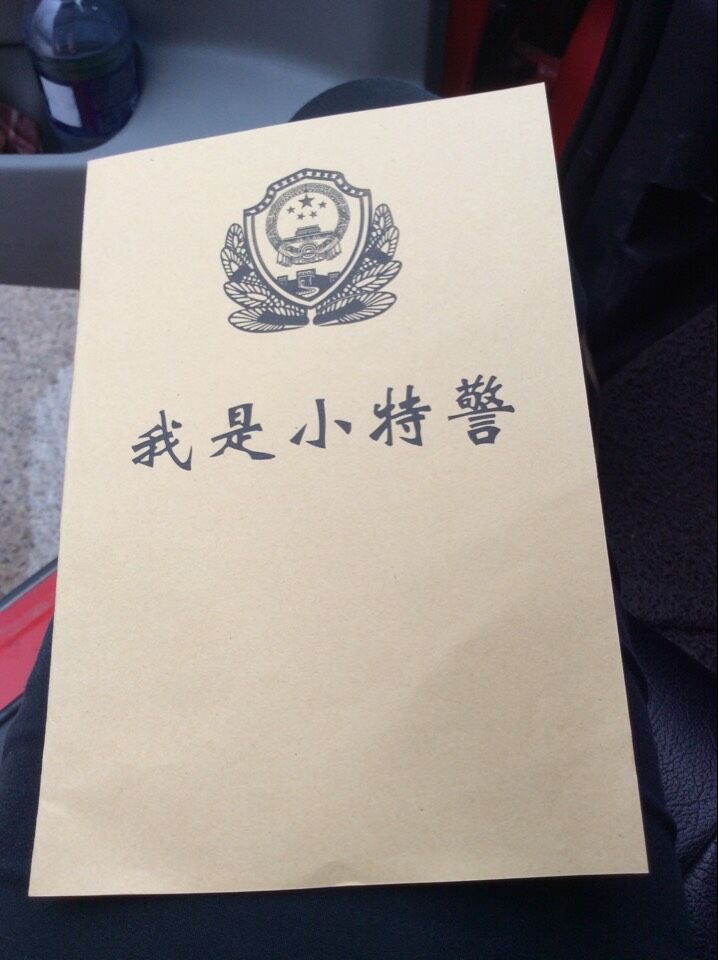 我是小特警